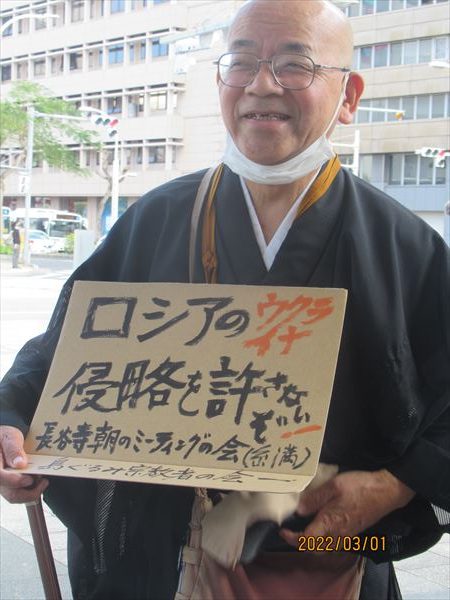 ロシアのウクライナ
侵略を許さないぞ!
長谷寺朝のミーティングの会(糸満)
島ぐるみ宗教者の会
2022/03/01